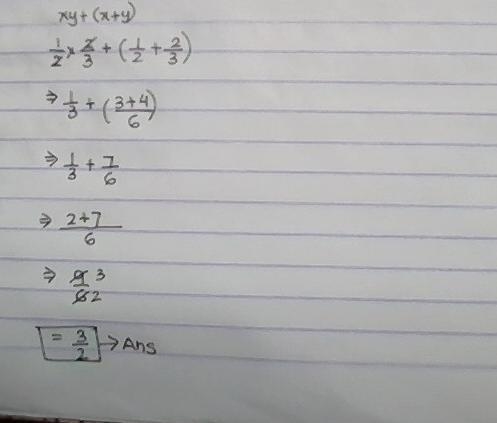 xy + (x+y)
1/2 × 2/3 + (1/2 + 2/3)
⇒ 1/3 + (3+4/6)
⇒ 1/3 + 7/6
⇒ 2+7/6
⇒ 9/6 3/2
= 3/2 → Ans